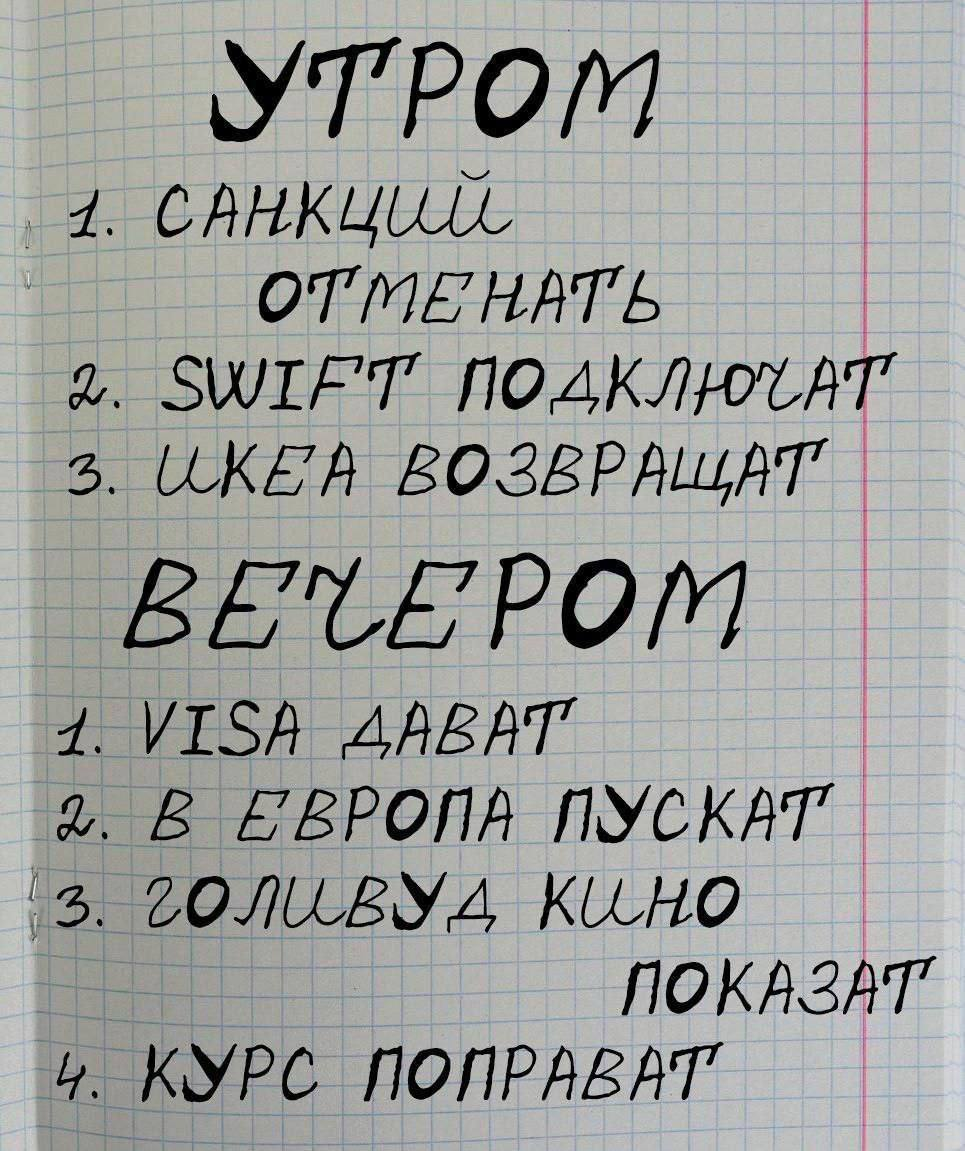 УТРОМ
1. САНКЦИЙ
ОТМЕНАТЬ
2. SWIFT ПОДКЛЮЧАТ
3. ИКЕА ВОЗВРАЩАТ
ВЕЧЕРОМ
1. VISA ДАВАТ
2. В ЕВРОПА ПУСКАТ
3. ГОЛИВУД КИНО
ПОКАЗАТ
4. КУРС ПОПРАВАТ